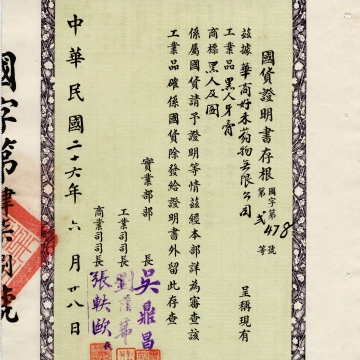 國貨證明書存根
國字第478號
第貳等
茲據華商好來藥物無限公司 呈稱現有
工業品黑人牙膏
商標黑人及圖
係屬國貨請予證明等情茲經本部詳為審查該
工業品確係國貨除發給證明書外留此存查
實業部部長吳鼎昌
工業司司長劉蔭茀
商業司司長張軼歐
中華民國二十六年六月廿八日
國字第肆柒捌號